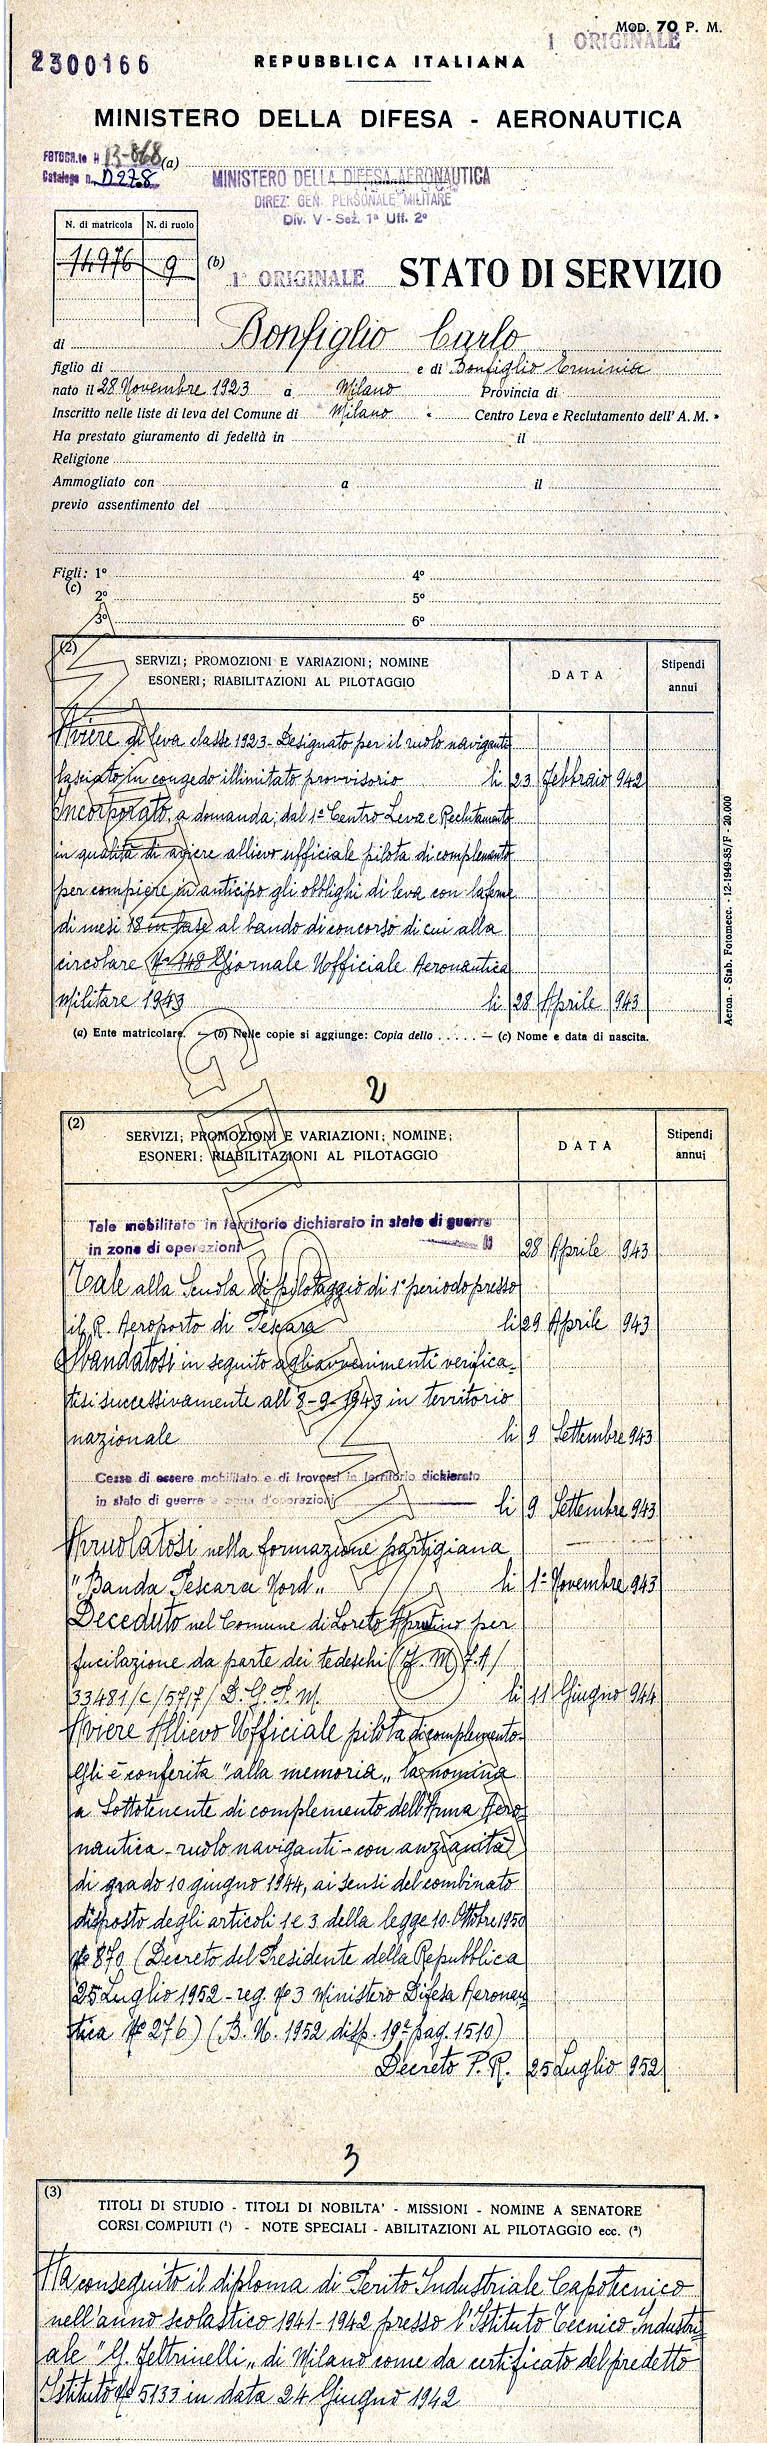 MOD. 70 P. M.
1 ORIGINALE
2300166
REPUBBLICA ITALIANA
MINISTERO DELLA DIFESA - AERONAUTICA
FOTOGR.to N 13-868 (a)
Catalogo n. D278
MINISTERO DELLA DIFESA AERONAUTICA
DIREZ. GEN. PERSONALE MILITARE
Div. V - Sez. 1ª Uff. 2º
N. di matricola N. di ruolo
14976 9
(b) 1° ORIGINALE STATO DI SERVIZIO
di Bonfiglio Carlo
figlio di e di Bonfiglio Erminia
nato il 28 Novembre 1923 a Milano Provincia di
Inscritto nelle liste di leva del Comune di Milano Centro Leva e Reclutamento dell'A.M.
Ha prestato giuramento di fedeltà in il
Religione
Ammogliato con a il
previo assentimento del
Figli: 1º 4º
(c) 2º 5º
3º 6º
(2) SERVIZI; PROMOZIONI E VARIAZIONI; NOMINE
ESONERI; RIABILITAZIONI AL PILOTAGGIO
DATA
Stipendi
annui
Aviere di leva classe 1923 - Designato per il ruolo naviganti
lasciato in congedo illimitato provvisorio li 23 Febbraio 942
Incorporato, a domanda, dal 1º Centro Leva e Reclutamento
in qualità di aviere allievo ufficiale pilota di complemento
per compiere in anticipo gli obblighi di leva con la ferma
di mesi 18 in base al bando di concorso di cui alla
circolare Nº 148 Giornale Ufficiale Aeronautica
Militare 1943 li 28 Aprile 943
Aeron. - Stab. Fotomecc. - 12-1949-85/F - 20.000
(a) Ente matricolare. — (b) Nelle copie si aggiunge: Copia dello . . . . . — (c) Nome e data di nascita.
2
(2) SERVIZI; PROMOZIONI E VARIAZIONI; NOMINE;
ESONERI; RIABILITAZIONI AL PILOTAGGIO
DATA
Stipendi
annui
Tale mobilitato in territorio dichiarato in stato di guerra
in zone di operazioni 28 Aprile 943
Tale alla Scuola di pilotaggio di 1º periodo presso
il R. Aeroporto di Pescara li 29 Aprile 943
Sbandatosi in seguito agli avvenimenti verifica=
tisi successivamente all'8-9-1943 in territorio
nazionale li 9 Settembre 943
Cessa di essere mobilitato e di trovarsi in territorio dichiarato
in stato di guerra e zona d'operazioni li 9 Settembre 943
Arruolatosi nella formazione partigiana
"Banda Pescara Nord" li 1º Novembre 943
Deceduto nel Comune di Loreto Aprutino per
fucilazione da parte dei tedeschi (F. M. 7.A/
33481/C/5717/ D.G.P.M. li 11 Giugno 944
Aviere Allievo Ufficiale pilota di complemento.
Gli è conferita "alla memoria" la nomina
a Sottotenente di complemento dell'Arma Aero
nautica - ruolo naviganti - con anzianità
di grado 10 giugno 1944, ai sensi del combinato
disposto degli articoli 1 e 3 della legge 10-Ottobre 1950
Nº 870 (Decreto del Presidente della Repubblica
25 Luglio 1952 - reg. Nº 3 Ministero Difesa Aeronau=
tica Nº 276) (B. U. 1952 disp. 19ª pag. 1510)
Decreto P. R. 25 Luglio 952
3
(3) TITOLI DI STUDIO - TITOLI DI NOBILTA' - MISSIONI - NOMINE A SENATORE
CORSI COMPIUTI (¹) - NOTE SPECIALI - ABILITAZIONI AL PILOTAGGIO ecc. (²)
Ha conseguito il diploma di Perito Industriale Capotecnico
nell'anno scolastico 1941-1942 presso l'Istituto Tecnico Industri=
ale "G. Feltrinelli" di Milano come da certificato del predetto
Istituto Nº 5133 in data 24 Giugno 1942